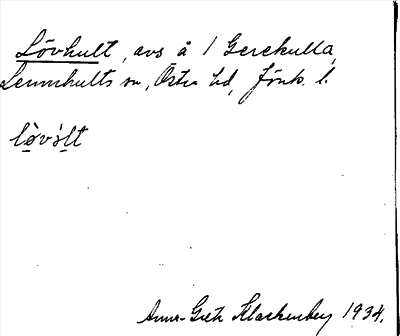 Lövhult, avs å 1 Gerekulla,
Lemnhults sn, Östra hd, Jönk. l.
lø̀v́lt
Anna-Greta Klackenberg 1934.